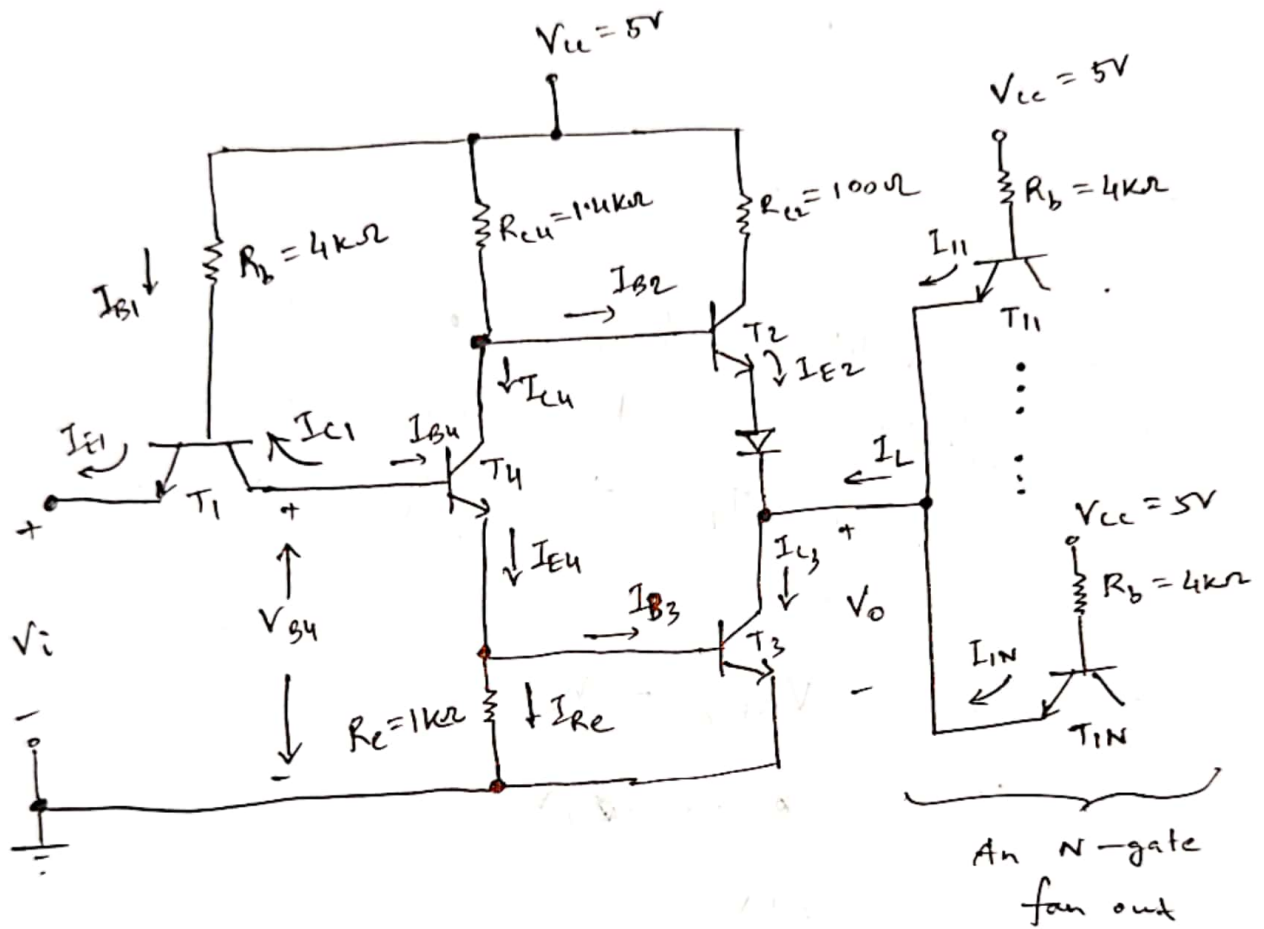 Vcc = 5V
Vcc = 5V
Rb = 4KΩ
Rc4 = 1.4KΩ
Rc2 = 100Ω
Rb = 4KΩ
IB1
IB2
I11
T11
T2
IE2
IC4
Ii1
IC1
IB4
T4
IL
T1
+
+
Vcc = 5V
IE4
IC3
+
Rb = 4KΩ
VB4
IB3
Vo
Vi
T3
I1N
-
-
Re = 1KΩ
IRe
T1N
-
An N-gate
fan out